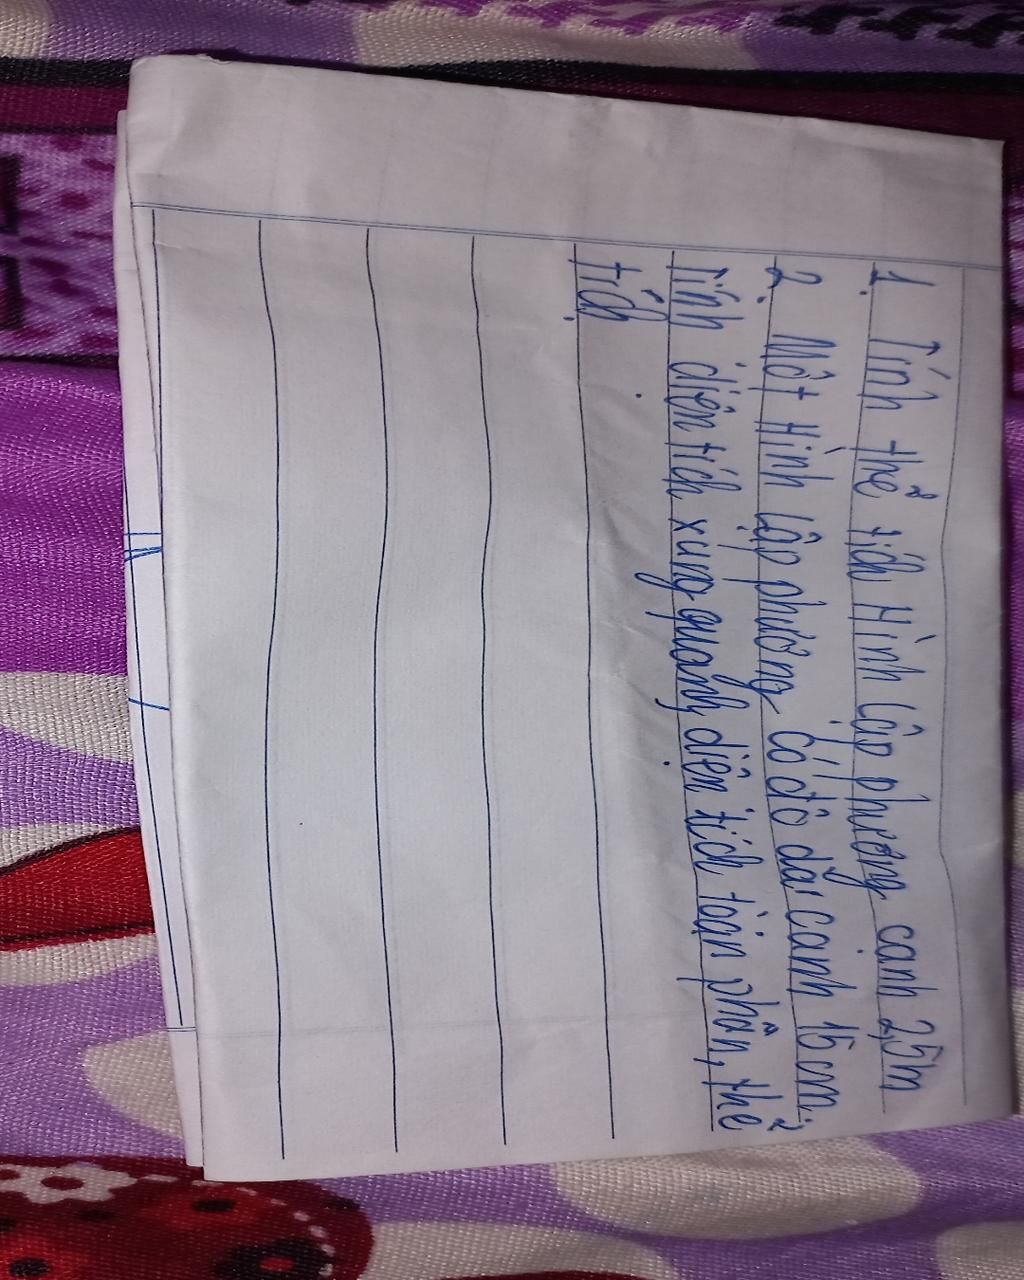 1. Tính thể tích Hình lập phương cạnh 2,5m
2. Một Hình lập phương có độ dài cạnh 15cm.
Tính diện tích xung quanh, diện tích toàn phần, thể
tích.